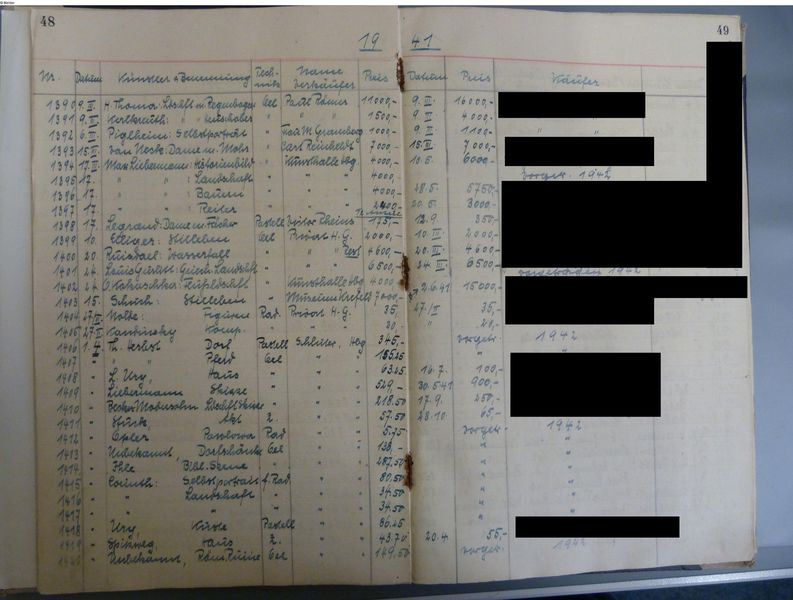 48
49
19 41
Nr. Datum Künstler u. Benennung Tech- Name Preis Datum Preis Käufer
nik Verkäufer
1390 9. III. H. Thoma: Ldschft m. Regenbogen Oel Paul Römer 11000,- 9. III. 16000,-
1391 9. III. " " " 1500,- 9. III 4000,-
1392 6. III Piglheim: Selbstporträt " 1000,- 9. III 1100,- " "
1393 15. III van Neck: Dame m. Mohr " Carl Reinholdt 7000,- 15. III. 7000,-
1394 17. III Max Liebermann: Historienbild " Kunsthalle Hbg 4000,- 10.5. 6000,-
1395 17. " " : Landschaft " " 4000,- vorgetr. 1942
1396 17. " " : Bauern " " 4000,- 28.5. 5750,-
1397 17 " " : Reiter " " 2400,- 20.5. 3000,-
1398 17. Legrand: Dame m. Fächer Pastell 175,- 12.9. 350,-
1399 10. : Stilleben Oel Privat H.G. 2000,- 10. III 2000,-
1400 20. Ruisdael: Wasserfall " " 4600,- 20. III 4600,-
1401 24. Louis Gurlitt: Landschft " " 6500,- 24. III 6500,-
1402 24. O. Kokoschka: Flußldschft " Kunsthalle Hbg 4000 2.6.41 15000,-
1403 15. Schuch: Stilleben " Museum Krefeld 7000,-
1404 27. II Nolde: Figuren Rad. Privat H.G. 35, 27./II 35,-
1405 27. II Kandinsky Komp. " " 20,- " 20,-
1406 1. 4. Th. Herbst Dorf Pastell Schlüter, Hbg 345,- vorgetr. 1942
1407 " " Pferd Oel " 155.25 " "
1408 " L. Ury, Haus " " 63.25 16.7. 100,-
1409 " Liebermann Skizze " " 529,- 30.5.41 900,-
1410 " Becker Modersohn Ldschft Skizze " " 218.50 17.9. 250,-
1411 " Stuck, Akt Z. " 57.50 23.10. 65,-
1412 " Oppler Pavlova Rad " 5.75 vorgetr. 1942
1413 " Unbekannt, Dorfschänke Oel " 138,- " "
1414 " Ihle Bibl. Szene " " 287.50 " "
1415 " Corinth: Selbstportrait f. Rad. " 80,50 " "
1416 " " Landschaft " " 34.50 " "
1417 " " " " " 34.50 " "
1418 " Ury, Küste Pastell " 86.25 " "
1419 " Spitzweg, Haus Z. " 43.70 20.4. 55,-
1420 " Unbekannt, Röm. Ruine Oel " 149.50 vorgetr. 1942